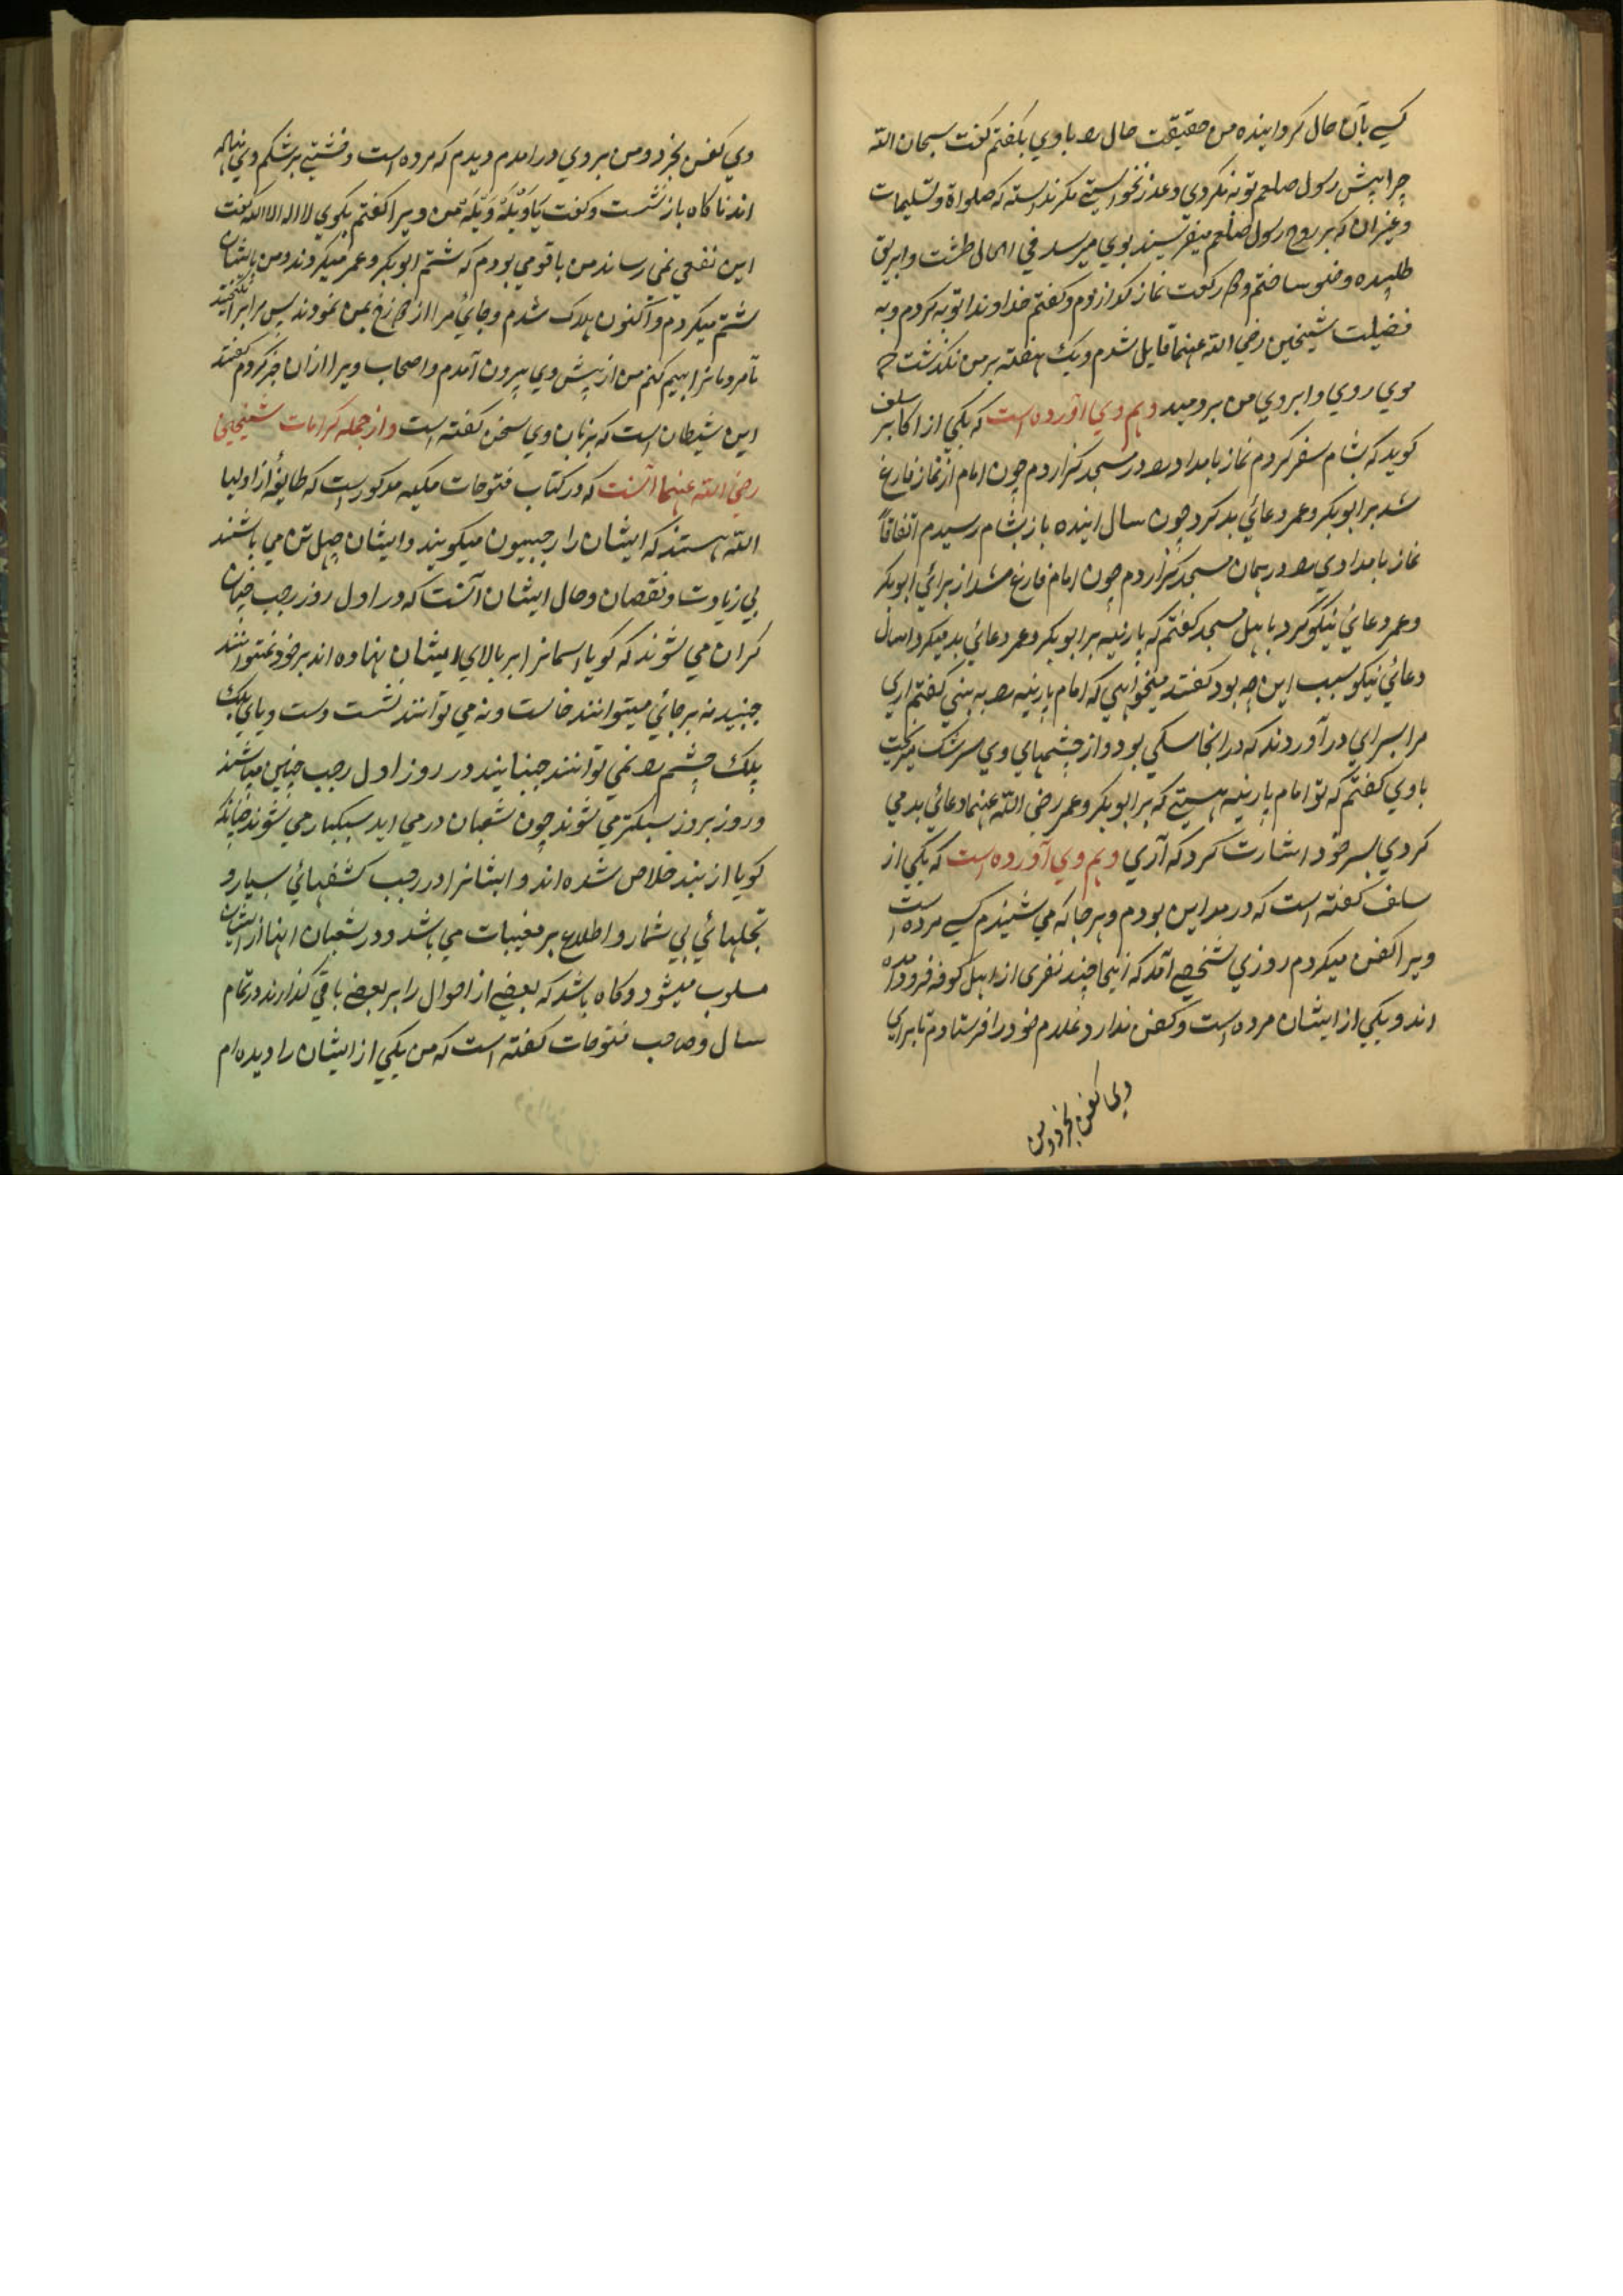 کسے بآن حال گرداینده من حقیقت حال را با وي بگفتم گفت سبحان الله
چرا پیش رسول صلعم توبه نکردی و عذر نخواستے مگر ندانسته که صلواة و تسلیمات
و غیر ان که بر روح رسول صلعم میفرستیند بوي میرسد في الحال طشت و ابریق
طلبیده وضو ساختم و دو رکعت نماز گذاردم و گفتم خداوندا توبه کردم و به
فضیلت شیخین رضي الله عنهما قایل شدم و یک هفته بر من نگذشت که
موي روي و ابروي من بردمید و هم وي آورده است که یکي از اکابر سلف
گوید که بشام سفر کردم نماز بامداد را در مسجد گزاردم چون امام از نماز فارغ
شد بر ابوبکر و عمر دعائي بد کرد چون سال اینده باز بشام رسیدم اتفاقاً
نماز بامدادي را در همان مسجد گزاردم چون امام فارغ شد از برائي ابوبکر
و عمر دعائي نیکو کرد با اهل مسجد گفتم که پارینه بر ابوبکر و عمر دعائي بد میکرد امسال
دعائي نیکو سبب این چه بود گفتند میخواهي که امام پارینه را به بیني گفتم اري
مرا بسراي در آوردند که در انجا سگي بود و از چشمهاي وي سرشک میریخت
باوي گفتم که تو امام پارینه هستے که بر ابوبکر و عمر رضي الله عنهما دعائي بد مي
کردي بسر خود اشارت کرد که آري و هم وي آورده است که یکي از
سلف گفته است که در مداین بودم و هر جا که مي شنیدم کسے مرده است
ویرا کفن میکردم روزي شخصے آمد که اینجا چند نفری از اهل کوفه فرود آمده
اند و یکي از ایشان مرده است و کفن ندارد غلام خود را فرستادم تا براي
وي کفن بخرد و من
وي کفن بخرد و من بروي در امدم دیدم که مرده است و خشتے بر شکم وي نهاده
اند ناکاه باز نشست و گفت یَا وَیْلَهٗ وَیْلَهٗ من ویرا گفتم بگوي لا اله الا الله گفت
این نفعي نمي رساند من با قومي بودم که شتم ابوبکر و عمر میکردند و من با ایشان
شتم میکردم و اکنون هلاک شدم و جائي مرا از دوزخ بمن نمودند پس مرا برانگیختند
تا مردمانرا بیم کنم من از پیش وي بیرون آمدم و اصحاب ویرا از ان خبر کردم گفتند
این شیطان است که بزبان وي سخن گفته است و از جمله کرامات شیخین
رضي الله عنهما آنست که در کتاب فتوحات مکیه مذکور است که طایفهٔ از اولیا
الله هستند که ایشان را رجبیون میگویند و ایشان چهل تن مي باشند
بي زیادت و نقصان و حال ایشان آنست که در اول روز رجب چنان
گران مي شوند که گویا اسمانرا بر بالاي ایشان نهاده اند بر خود نمیتوانند
جنبید نه بر جائي میتوانند خاست و نه مي توانند نشست و دست و پاي بلک
پلک چشم را نمي توانند جنبانید در روز اول رجب چنین میباشند
و روز بروز سبکتر مي شوند چون شعبان در مي اید سبکبار مي شوند چنانکه
گویا از بند خلاص شده اند و ایشانرا در رجب کشفهائي بسیار و
تجلیهائي بي شمار و اطلاع بر مغیبات مي باشد و در شعبان اینها از ایشان
مسلوب میشود و گاه باشد که بعضے از احوال را بر بعضے باقي گذارند در تمام
سال و صاحب فتوحات گفته است که من یکي از ایشان را دیده ام